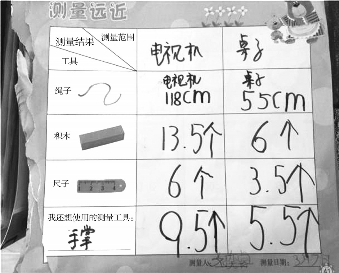 测量远近
测量结果 测量范围
工具
电视机 桌子
绳子
电视机 118cm
桌子 55cm
积木
13.5个 6个
尺子
1 2 3 4
6个 3.5个
我还想使用的测量工具:
手掌
9.5个 5.5个
测量人: 测量日期: